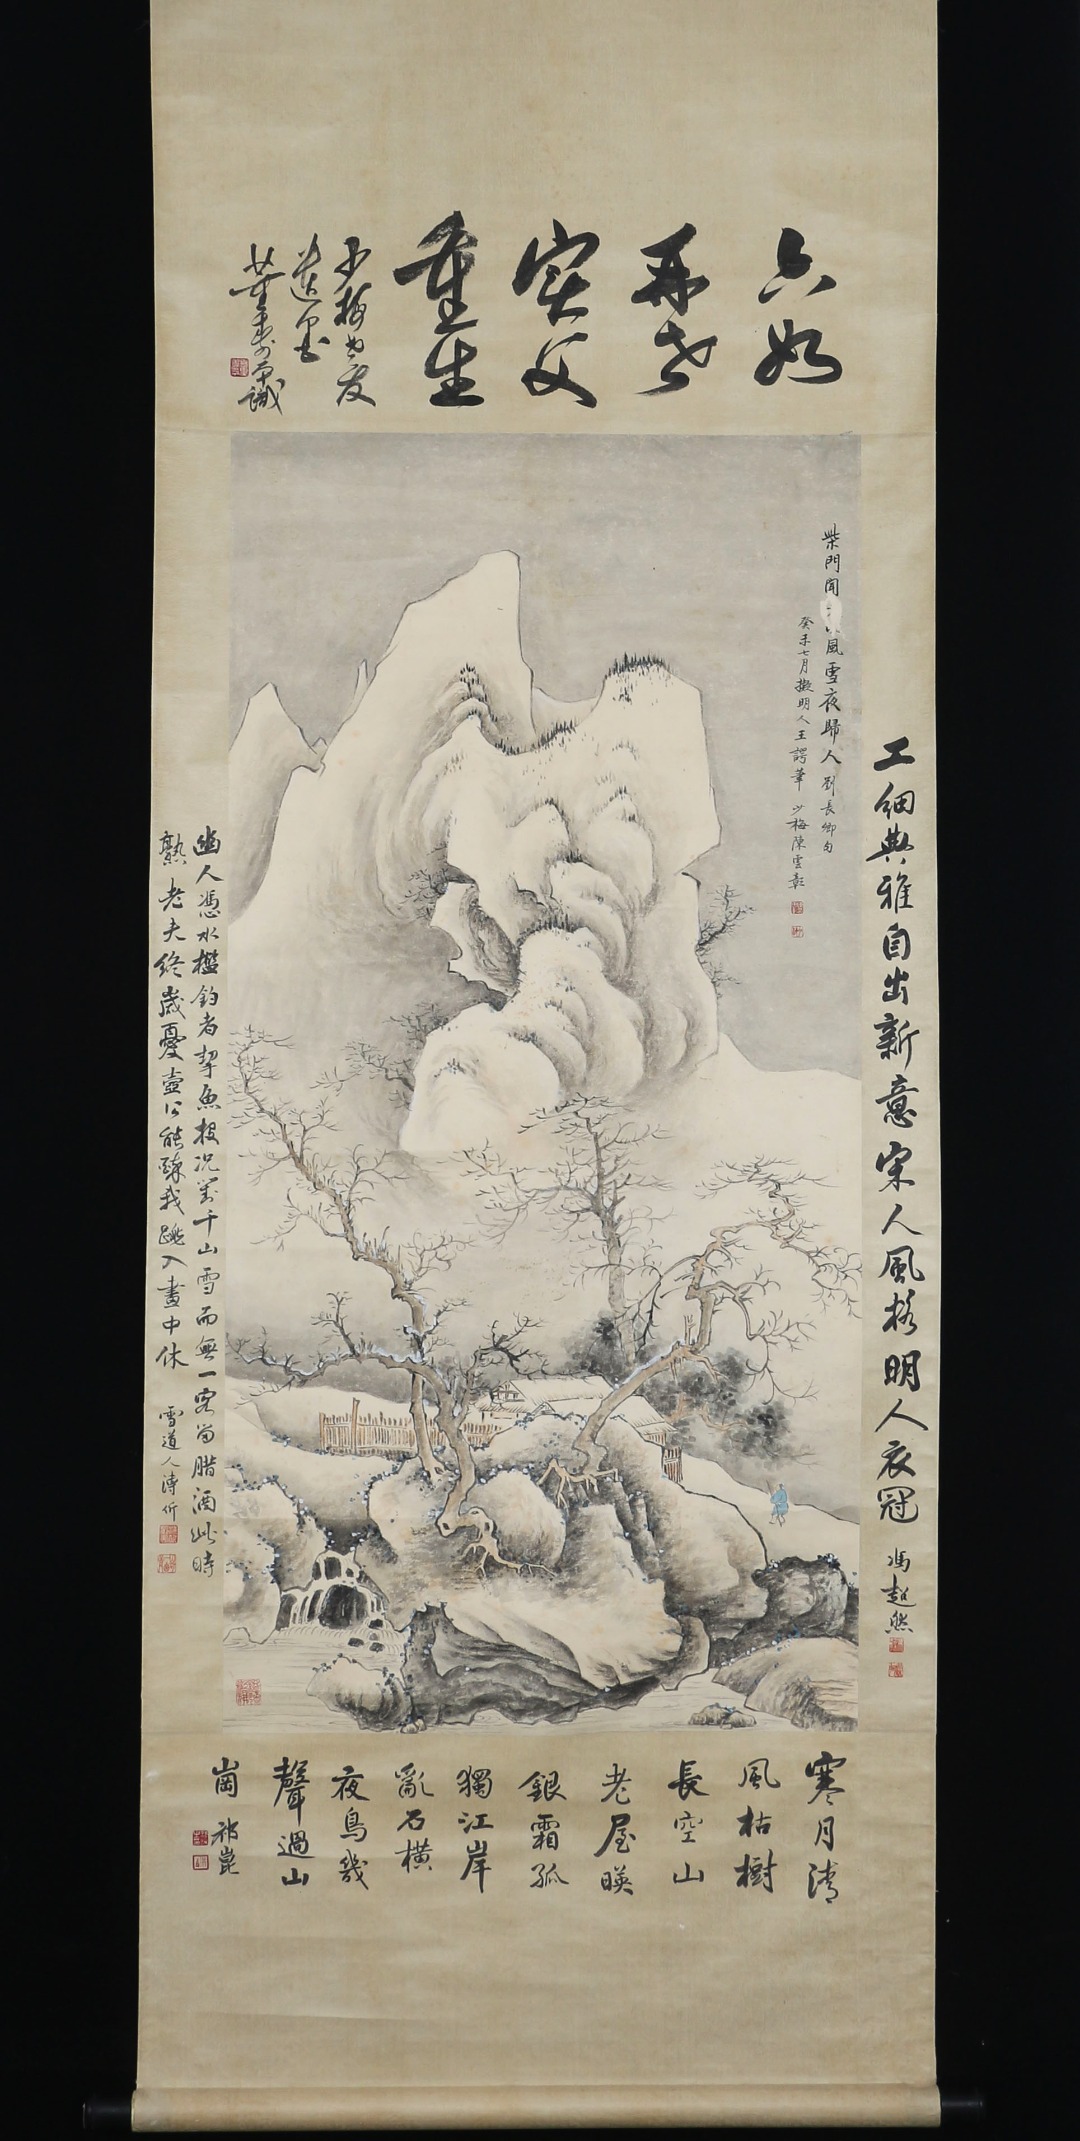 六如
再世
實父
重生
少梅書友
遺墨
董壽平識
柴門聞
風雪夜歸人 劉長卿句
癸未七月擬明人王諤筆 少梅陳雲彰
工細典雅自出新意宋人風格明人衣冠 馮超然
幽人憑水檻釣者挈魚投況對千山雪而無一客留腊酒此時
熟老夫終歲憂壺公能踈我跳入畫中休 雪道人溥伒
寒月清
風枯樹
長空山
老屋暎
銀霜孤
獨江岸
亂石橫
夜鳥幾
聲過山
崗 祁崑